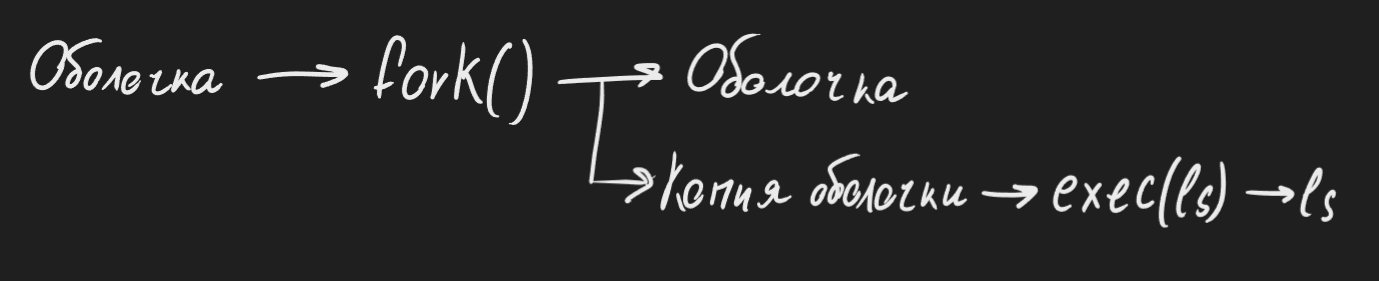 Оболочка → fork() → Оболочка
→ Копия оболочки → exec(ls) → ls